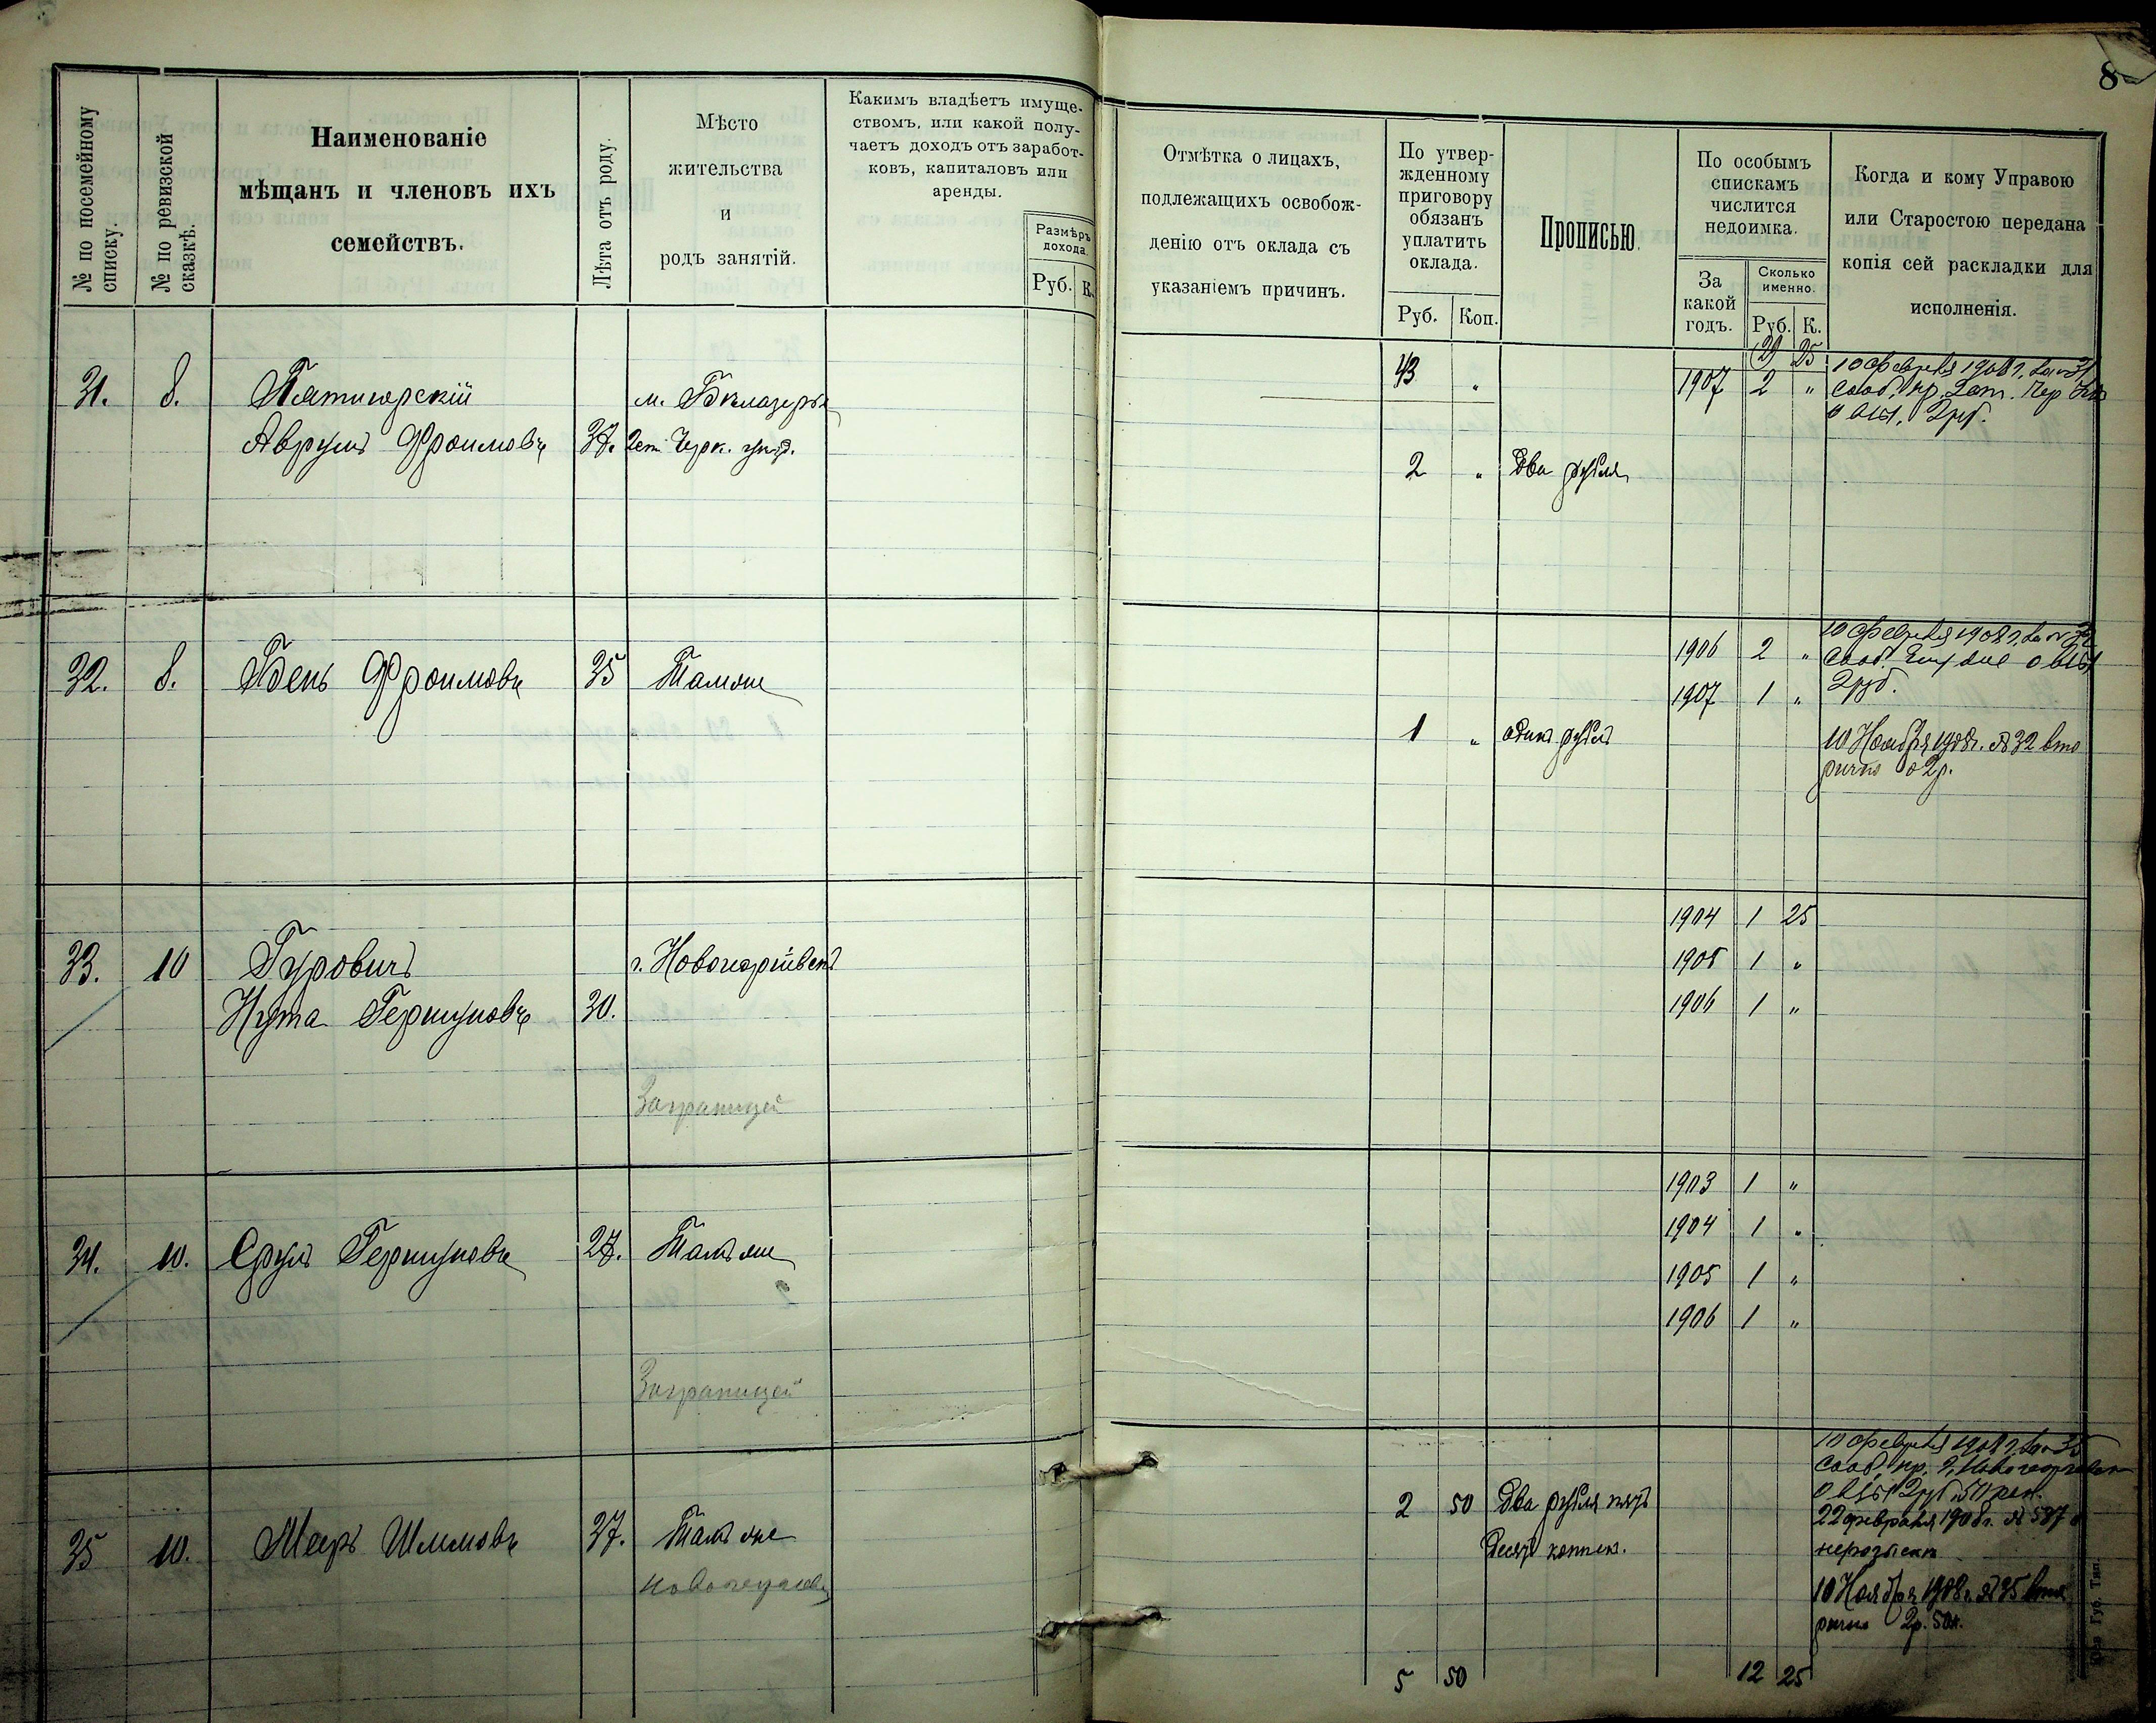 8
№ по посемейному списку.
№ по ревизской сказкѣ.
Наименованіе
мѣщанъ и членовъ ихъ
семействъ.
Лѣта отъ роду.
Мѣсто
жительства
и
родъ занятій.
Какимъ владѣетъ имуще-
ствомъ, или какой полу-
чаетъ доходъ отъ заработ-
ковъ, капиталовъ или
аренды.
Размѣръ
дохода.
Руб. К.
Отмѣтка о лицахъ,
подлежащихъ освобож-
денію отъ оклада съ
указаніемъ причинъ.
По утвер-
жденному
приговору
обязанъ
уплатить
оклада.
Руб. Коп.
Прописью.
По особымъ
спискамъ
числится
недоимка.
За
какой
годъ.
Сколько
именно.
Руб. К.
Когда и кому Управою
или Старостою передана
копія сей раскладки для
исполненія.
31. 8. Пятигорскій м. Бѣлозерье
Аврумъ Фроимовъ 37. Черк. уѣзд.
43 "
29 25
1907 2 "
10 февраля 1908 г. за № 31
сооб. пр.
2 руб.
2 " Два рубля
32. 8. Бень Фроимовъ 35 Тамже
1906 2 "
1907 1 "
10 февраля 1908 г. за № 32
сооб.
2 руб.
1 " один рубль
10 Ноября 1908 г. № 32 вто
рично о 2 р.
33. 10 Гуровичъ г. Новогеоргіевскъ
Нута Гершуновъ 30.
Заграницей
1904 1 25
1905 1 "
1906 1 "
34. 10. Срулъ Гершуновъ 27. Тамъ же
Заграницей
1903 1 "
1904 1 "
1905 1 "
1906 1 "
35 10. Меер Шлемовъ 37. Тамъ же
2 50 Два рубля пять
десят копеек.
10 февраля 1908 г. за № 35
сооб. пр. г. Новогеоргіевск
2 руб. 50 коп.
22 февраля 1908 г. № 587
10 Ноября 1908 г. № 35 вто
рично 2 р. 50 к.
5 50
12 25
Губ. Тип.